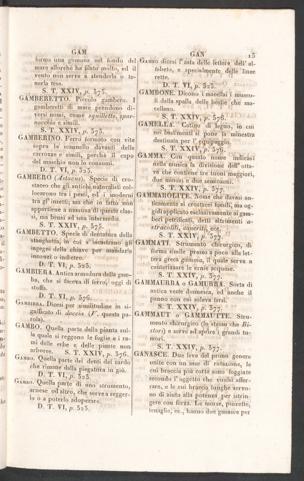 GAM
forma una gomona sul fondo del
mare allorchè ha filato molto, ed il
vento non serve a stenderla o te-
nerla tesa.
S. T. XXIV, p. 375.
GAMBERETTO. Piccolo gambero. I
gamberetti di mare prendono di-
versi nomi, come squillette, spar-
nocchie e simili.
S. T. XXIV, p. 375.
GAMBERINO. Ferro formato con vite
sopra le scannello davanti delle
carrozze e simili, perchè il capo
del maschio non lo consumi.
D. T. VI, p. 323.
GAMBERO (Astacus). Specie di cro-
stacea che gli antichi naturalisti col-
locarono tra i pesci, ed i moderni
tra gl'insetti; ma che in fatto non
appartiene a nessuna di queste clas-
si, ma bensì ad una intermedia.
S. T. XXIV, p. 375.
GAMBETTO. Specie di dentatura della
stanghetta, in cui s'incontrano gli
ingegni della chiave per mandarla
innanzi o indietro.
D. T. VI, p. 323.
GAMBIERA. Antica armadura delle gam-
be, che si faceva di ferro; oggi di
stoffa.
D. T. VI, p. 376.
GAMBIERA. Dicesi per similitudine in si-
gnificato di doccia (V. questa pa-
rola).
GAMBO. Quella parte della pianta sul-
la quale si reggono le foglie e i ra-
mi delle erbe e delle piante non
arboree. S. T. XXIV, p. 376.
GAMBO. Quella parte dei denti dei cardi
che rimane dalla piegatura in giù.
D. T. VI, p. 323.
GAMBO. Quella parte di uno strumento,
arnese od altro, che serve a regger-
lo o a poterlo adoperare.
D. T. VI, p. 323.
GAN
15
GAMBO dicesi l'asta delle lettere dell'al-
fabeto, e specialmente delle linee
rette.
D. T. VI, p. 323.
GAMBONE. Dicono i macellai i muscoli
della spalla delle bestie che ma-
cellano.
S. T. XXIV, p. 376.
GAMELLA. Catino di legno, in cui
nei bastimenti si pone la minestra
destinata per l'equipaggio.
S. T. XXIV, p. 376.
GAMMA. Con questo nome indicasi
nella musica la divisione dell'otta-
va che contiene tre tuoni maggiori,
due minori e due semituoni.
S. T. XXIV, p. 377.
GAMMAROLITE. Nome che davasi an-
ticamente ai crostacei fossili, ma og-
gidì applicato esclusivamente ai gam-
beri petrificati, detti altrimenti
astracoliti, ecc.
S. T. XXIV, p. 377.
GAMMATI. Strumento chirurgico, di
forma simile presso a poco alla let-
tera greca gamma, il quale serve a
cauterizzare le ernie acquose.
S. T. XXIV, p. 377.
GAMMAURBA o GAMURRA. Sorta di
antica veste domenica, ed anche il
panno con cui soleva farsi.
S. T. XXIV, p. 377.
GAMMAUT o GAMMAUTTE. Stru-
mento chirurgico (lo stesso che Bi-
stori) e serve ad aprire i grandi tu-
mori.
S. T. XXIV, p. 377.
GANASCE. Due leve del primo genere
unite con un asse di rotazione, le
cui braccia più corte sono foggiate
secondo l'oggetto che vuolsi affer-
rare, e le cui braccia lunghe servo-
no di aiuto alla potenza per istrin-
gere con forza. Le morse, pinzette,
tenaglie, ec., hanno due ganasce per